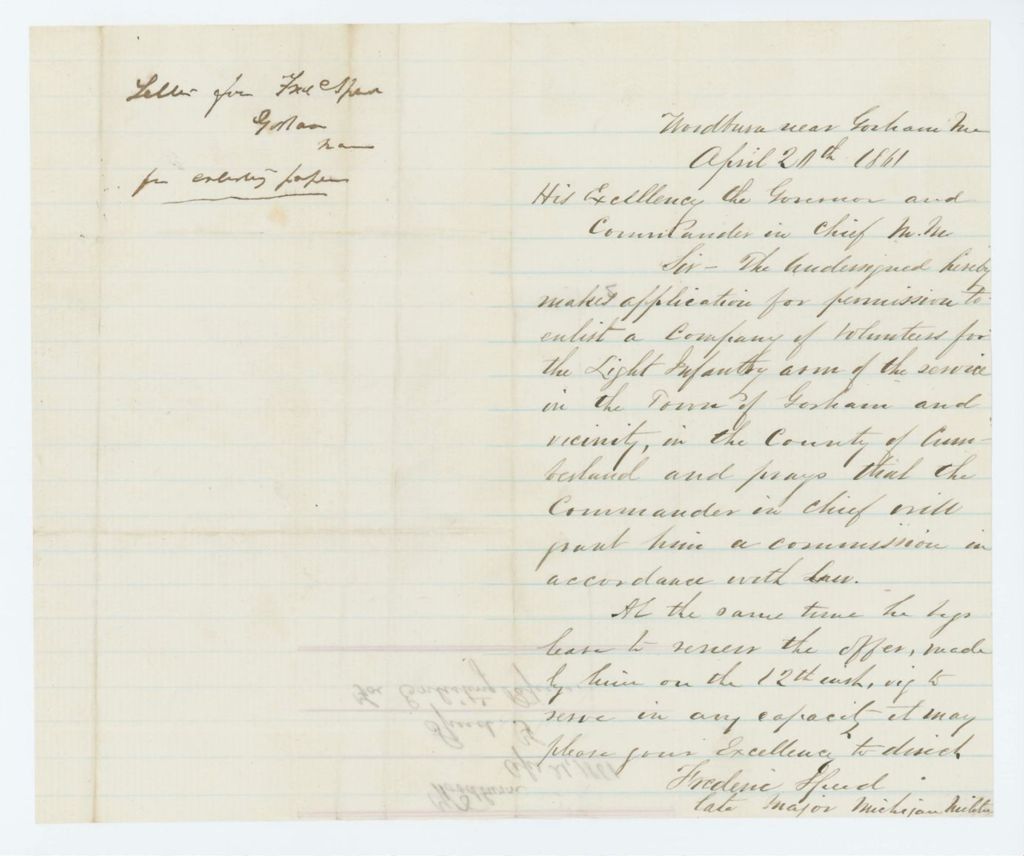 Letter from Fred Speed
Gorham
Me
for enlisting papers
Woodburn near Gorham Me
April 20th 1861
His Excellency the Governor and
Commander in Chief M.M.
Sir – The undersigned hereby
makes application for permission to
enlist a Company of Volunteers for
the Light Infantry arm of the service
in the Town of Gorham and
vicinity, in the County of Cum-
berland and prays that the
Commander in Chief will
grant him a commission in
accordance with Law.
At the same time he begs
leave to renew the offer, made
by him on the 12th inst, viz to
serve in any capacity it may
please your Excellency to direct
Frederic Speed
late Major Michigan Militia